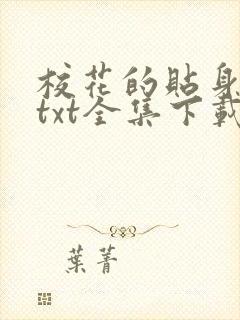 校花的貼身
txt全集下載
葉菁